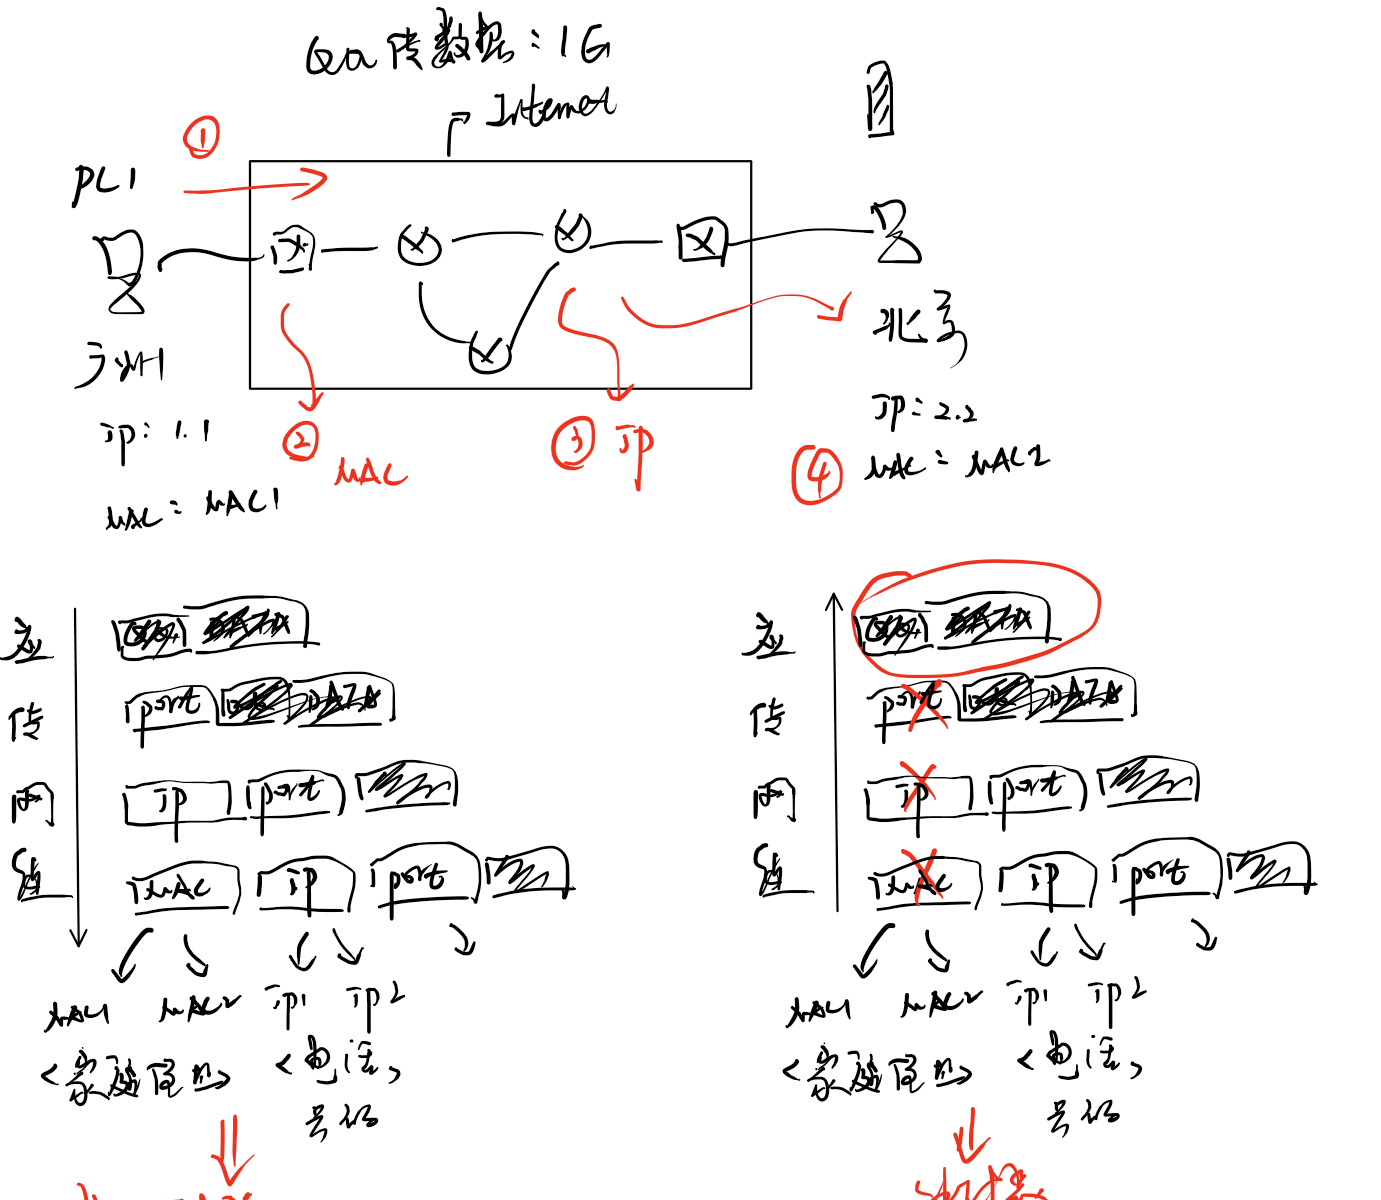 QQ 传数据：1G
Internet
①
PC1
广州
IP：1.1
MAC：MAC1
②
MAC
③ IP
④
北京
IP：2.2
MAC：MAC2
应
传 port DATA
网 IP port
链 MAC IP port
MAC1 MAC2 IP1 IP2
<家庭住址> <电话号码>
应
传 port DATA
网 IP port
链 MAC IP port
MAC1 MAC2 IP1 IP2
<家庭住址> <电话号码>